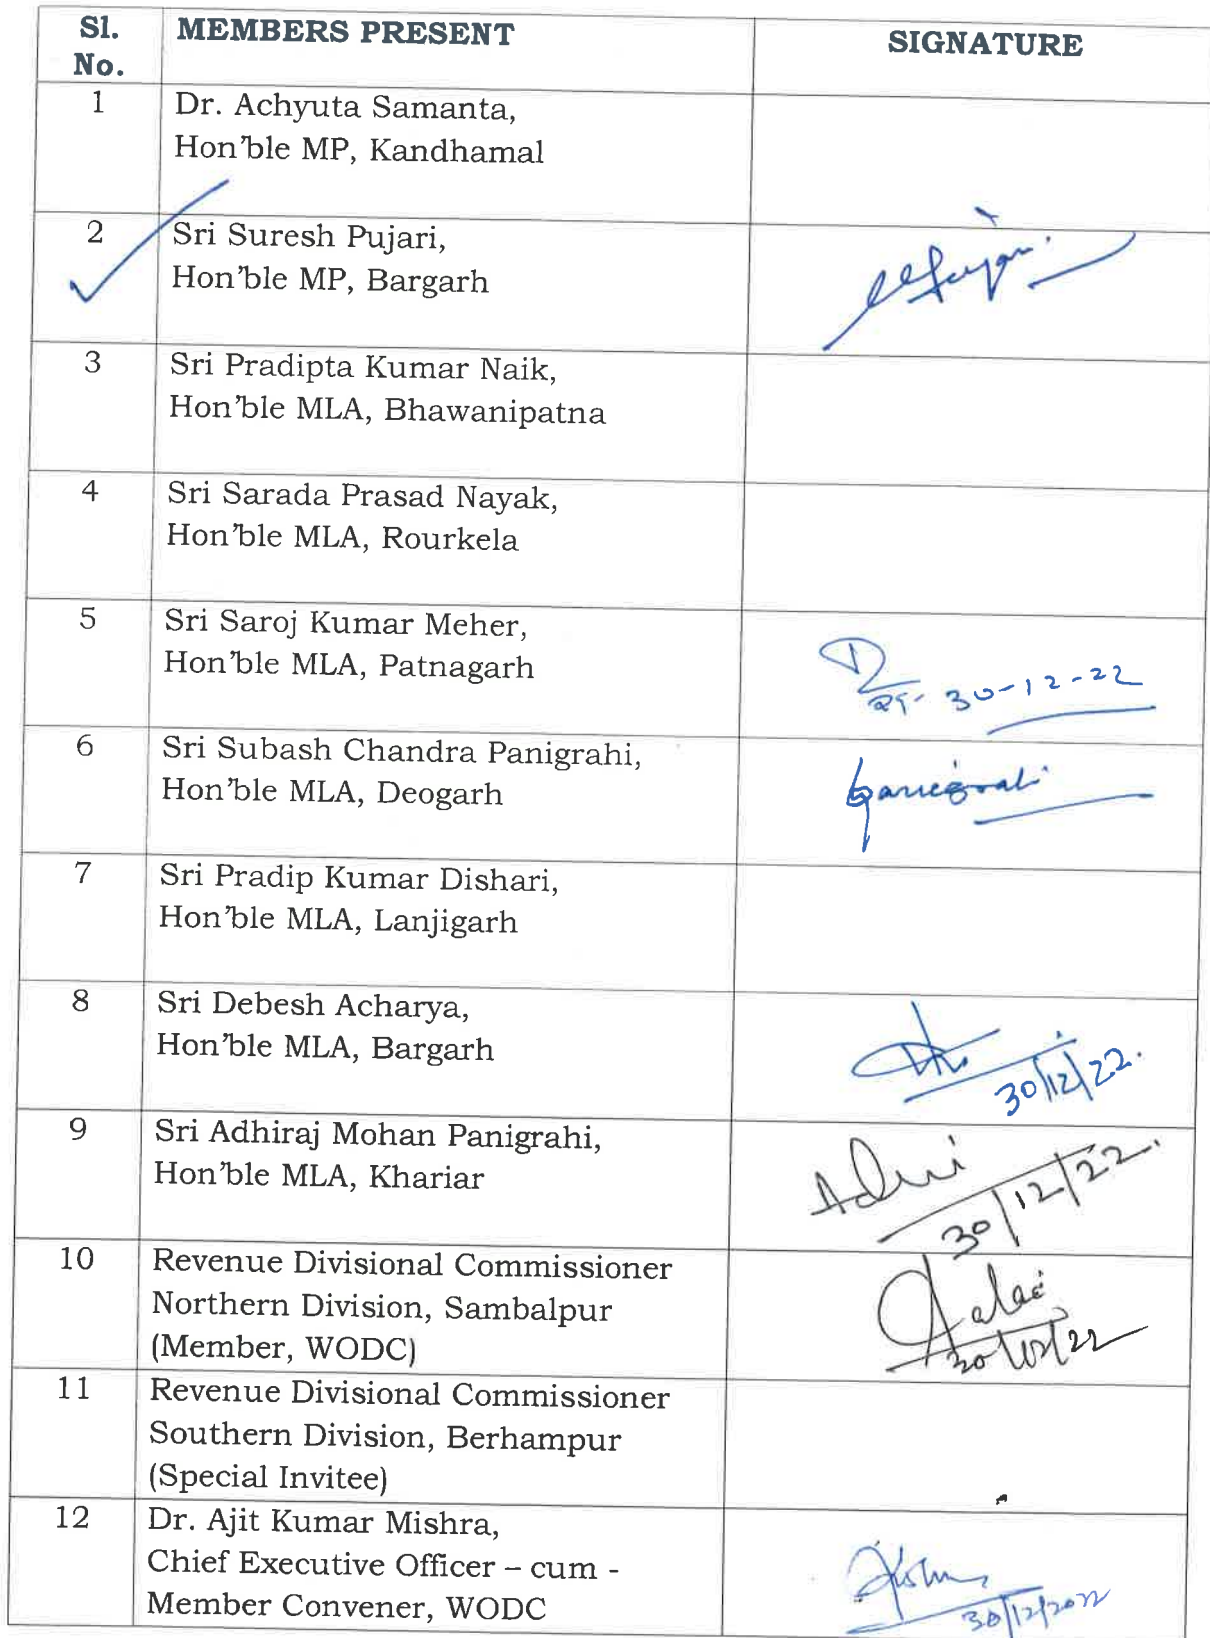 Sl. No. MEMBERS PRESENT SIGNATURE
1 Dr. Achyuta Samanta,
Hon'ble MP, Kandhamal
2 Sri Suresh Pujari,
Hon'ble MP, Bargarh
3 Sri Pradipta Kumar Naik,
Hon'ble MLA, Bhawanipatna
4 Sri Sarada Prasad Nayak,
Hon'ble MLA, Rourkela
5 Sri Saroj Kumar Meher,
Hon'ble MLA, Patnagarh
30-12-22
6 Sri Subash Chandra Panigrahi,
Hon'ble MLA, Deogarh
7 Sri Pradip Kumar Dishari,
Hon'ble MLA, Lanjigarh
8 Sri Debesh Acharya,
Hon'ble MLA, Bargarh
30/12/22.
9 Sri Adhiraj Mohan Panigrahi,
Hon'ble MLA, Khariar
30/12/22.
10 Revenue Divisional Commissioner
Northern Division, Sambalpur
(Member, WODC)
30/12/22
11 Revenue Divisional Commissioner
Southern Division, Berhampur
(Special Invitee)
12 Dr. Ajit Kumar Mishra,
Chief Executive Officer – cum -
Member Convener, WODC
30/12/2022